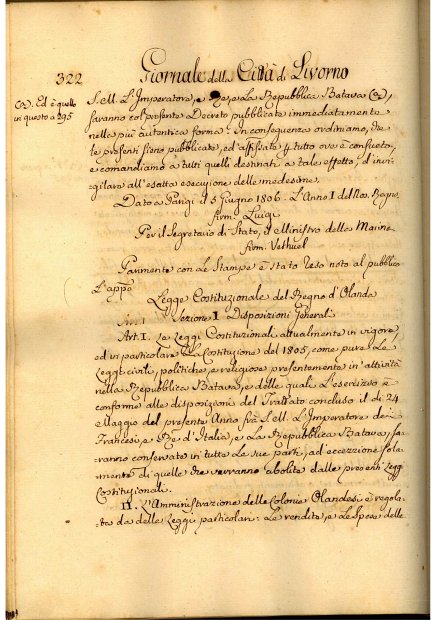 322 Giornale della Città di Livorno
(a). Ed è quello
in questo a 295
S. e R. L'Imperatore, e Re, e La Repubblica Batava (a),
saranno col presente Decreto pubblicate immediatamente
nella più autentica forma. In conseguenza ordiniamo, che
le presenti sieno pubblicate, ed affissate p tutto ove è consueto,
e comandiamo a tutti quelli destinati a tale effetto, d'invi=
gilare all'esatta esecuzione delle medesime.
Dato a Parigi il 5 Giugno 1806. L'Anno I del Nos. Regno
firm. Luigi
Per il Segretario di Stato, il Ministro della Marina
firm. Verhuel
Parimente con Le Stampe è stata resa nota al pubblico
L'appo
Legge Costituzionale del Regno d'Olanda
Sezione I. Disposizioni Generali
Art. I. Le Leggi Costituzionali attualmente in vigore,
ed in particolare La Costituzione del 1805, come pure Le
Leggi civili, politiche, e religiose presentemente in'attività
nella Repubblica Batava, e delle quali L'esercizio è
conforme alle disposizioni del Trattato concluso il dì 24
Maggio del presente Anno frà S. M. L'Imperatore dei
Francesi, e Re d'Italia, e La Repubblica Batava, sa=
ranno conservate in tutte Le sue parti, ad eccezzione sola=
mente di quelle che verranno abolite dalle presenti Leggi
Costituzionali.
II. L'Amministrazione delle Colonie Olandesi è regola=
ta da delle Leggi particolari: Le rendite, e Le Spese delle